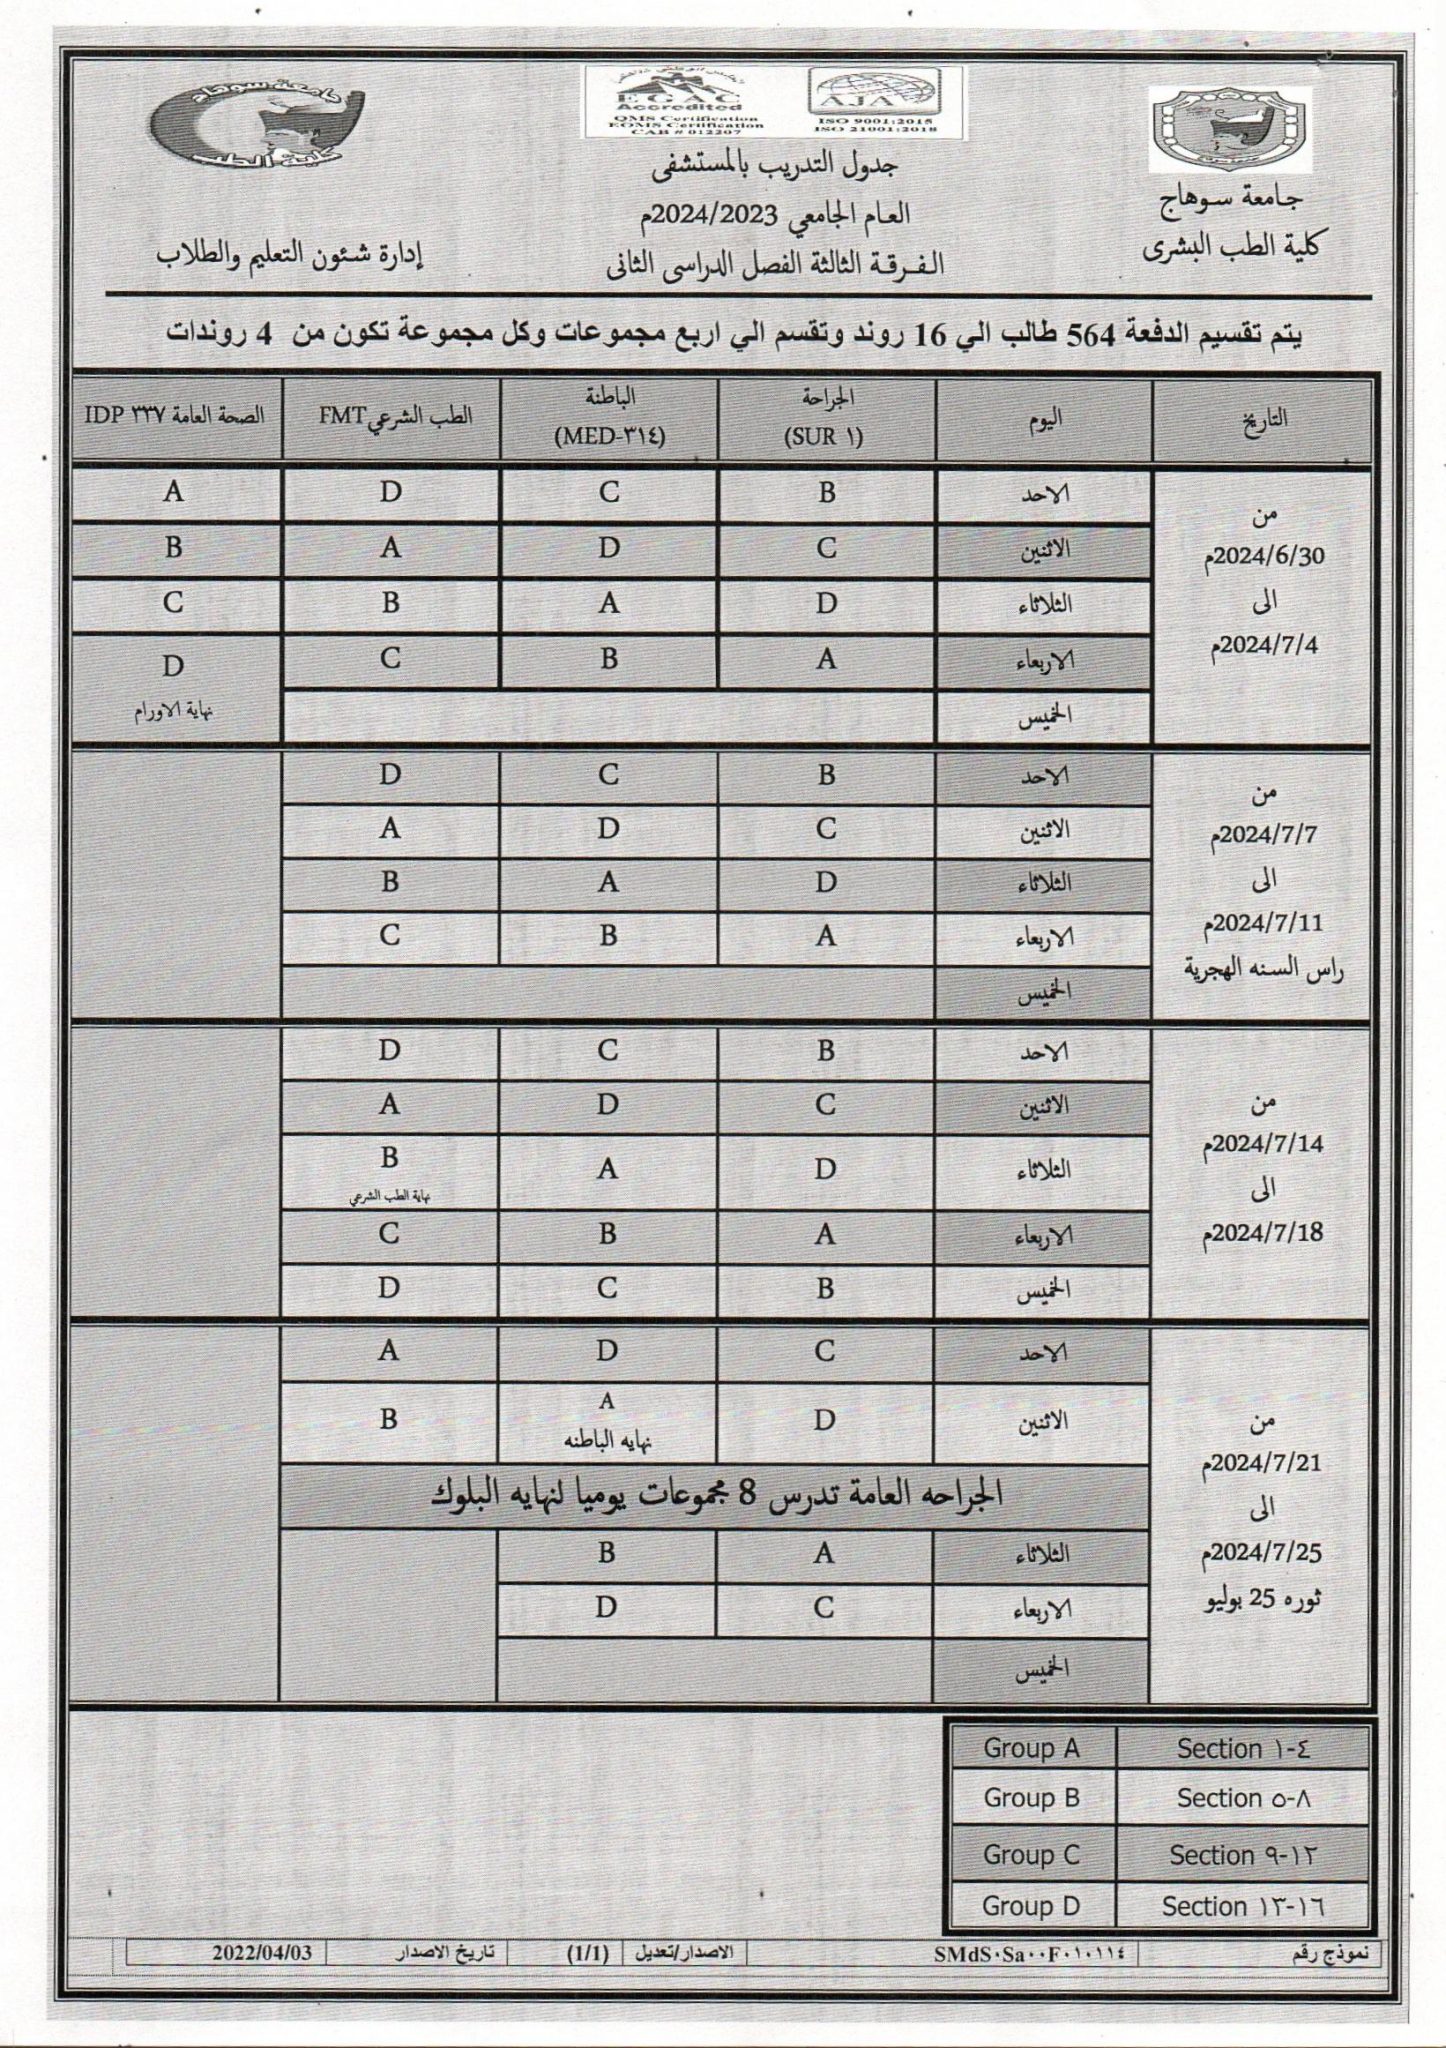 جامعة سوهاج
كلية الطب
EGAC
Accredited
QMS Certification
EOMS Certification
CAB # 012207
AJA
ISO 9001:2015
ISO 21001:2018
جامعة سوهاج
كلية الطب البشرى
جدول التدريب بالمستشفى
العام الجامعي 2024/2023م
الفرقة الثالثة الفصل الدراسى الثانى
إدارة شئون التعليم والطلاب
يتم تقسيم الدفعة 564 طالب الي 16 روند وتقسم الي اربع مجموعات وكل مجموعة تكون من 4 روندات
التاريخ اليوم الجراحة (SUR ١) الباطنة (MED-٣١٤) الطب الشرعي FMT الصحة العامة IDP ٣٣٧
من
2024/6/30م
الى
2024/7/4م
الاحد B C D A
الاثنين C D A B
الثلاثاء D A B C
الاربعاء A B C D
نهاية الاورام
الخميس
من
2024/7/7م
الى
2024/7/11م
راس السنه الهجرية
الاحد B C D
الاثنين C D A
الثلاثاء D A B
الاربعاء A B C
الخميس
من
2024/7/14م
الى
2024/7/18م
الاحد B C D
الاثنين C D A
الثلاثاء D A B
نهاية الطب الشرعي
الاربعاء A B C
الخميس B C D
من
2024/7/21م
الى
2024/7/25م
ثوره 25 يوليو
الاحد C D A
الاثنين D A B
نهايه الباطنه
الجراحه العامة تدرس 8 مجموعات يوميا لنهايه البلوك
الثلاثاء A B
الاربعاء C D
الخميس
Group A Section ١-٤
Group B Section ٥-٨
Group C Section ٩-١٢
Group D Section ١٣-١٦
نموذج رقم SMdS٠Sa٠٠F٠١٠١١٤ الاصدار/تعديل (1/1) تاريخ الاصدار 2022/04/03